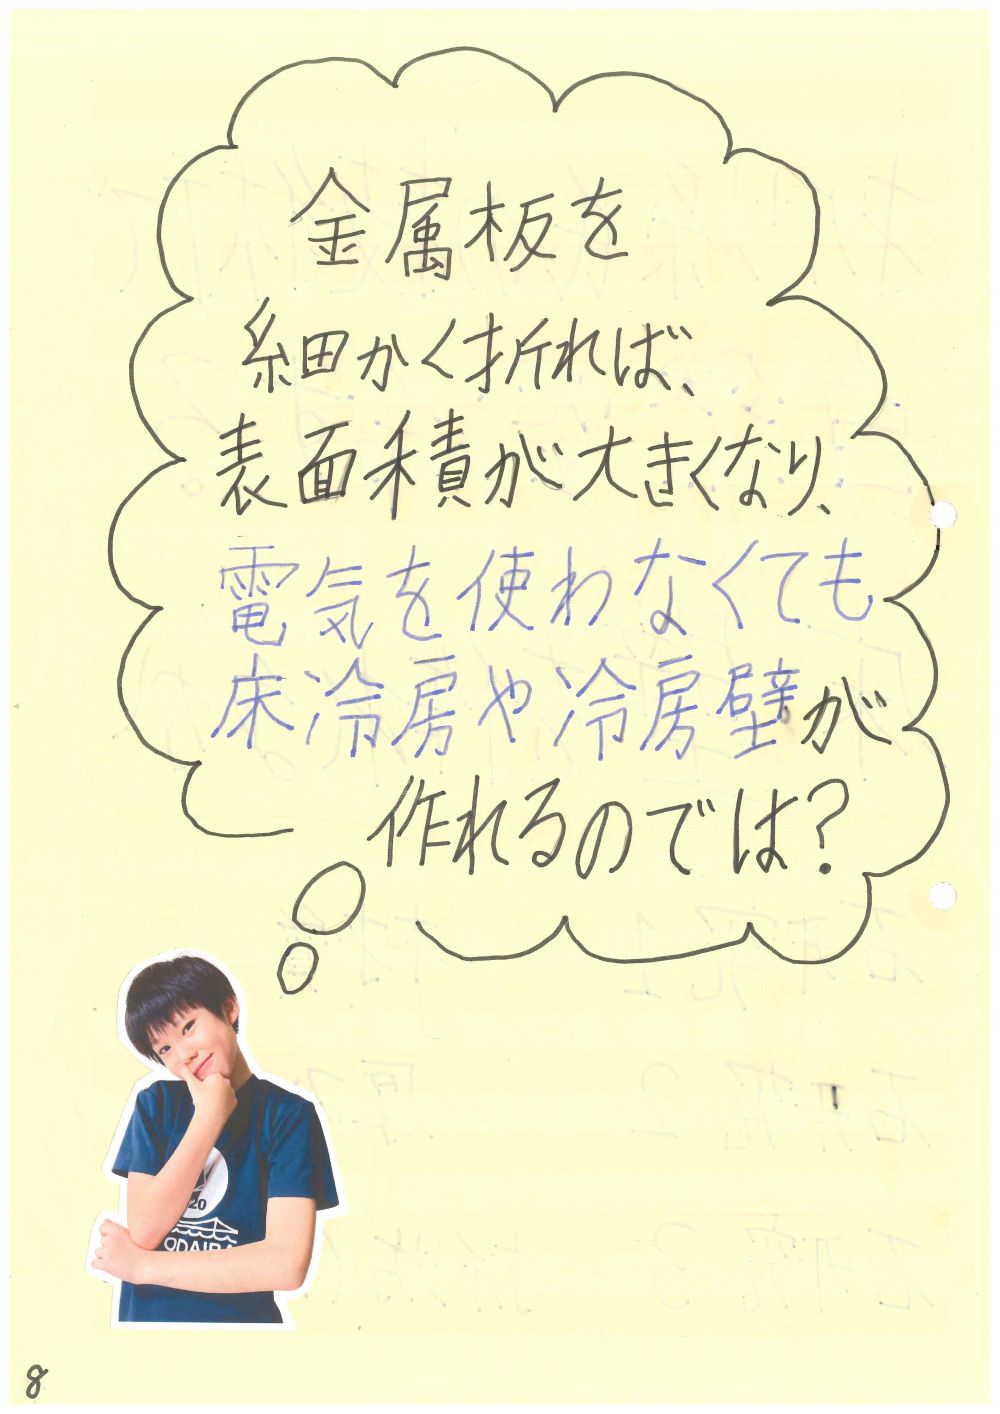 金属板を
細かく折れば、
表面積が大きくなり、
電気を使わなくても
床冷房や冷房壁が
作れるのでは?
20
ODAIBA
8